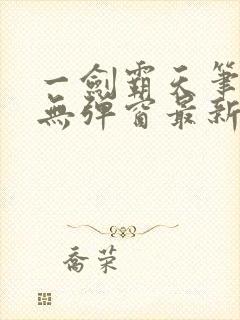 一劍霸天筆
無彈窗最新
喬荣